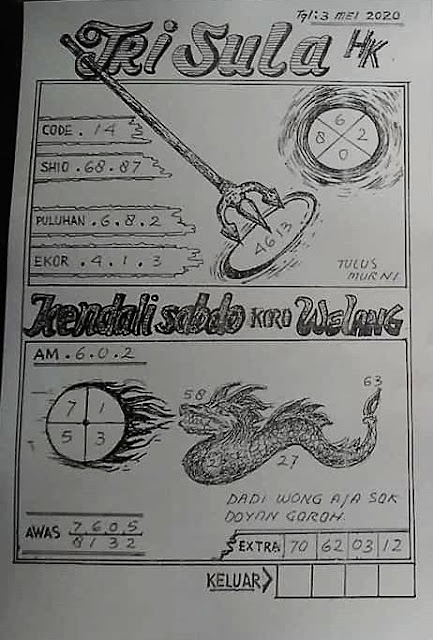 Tgl: 3 MEI 2020
TRi Sula HK
6
8 2
0
CODE . 14
SHIO . 68 . 87
PULUHAN . 6 . 8 . 2
EKOR . 4 . 1 . 3
4613
TULUS
MURNI
Kendali sabdo KARO WELANG
AM . 6 . 0 . 2
58
63
7 1
5 3
27
DADI WONG AJA SOK
DOYAN GOROH.
AWAS 7605
8132
EXTRA 70 62 03 12
KELUAR